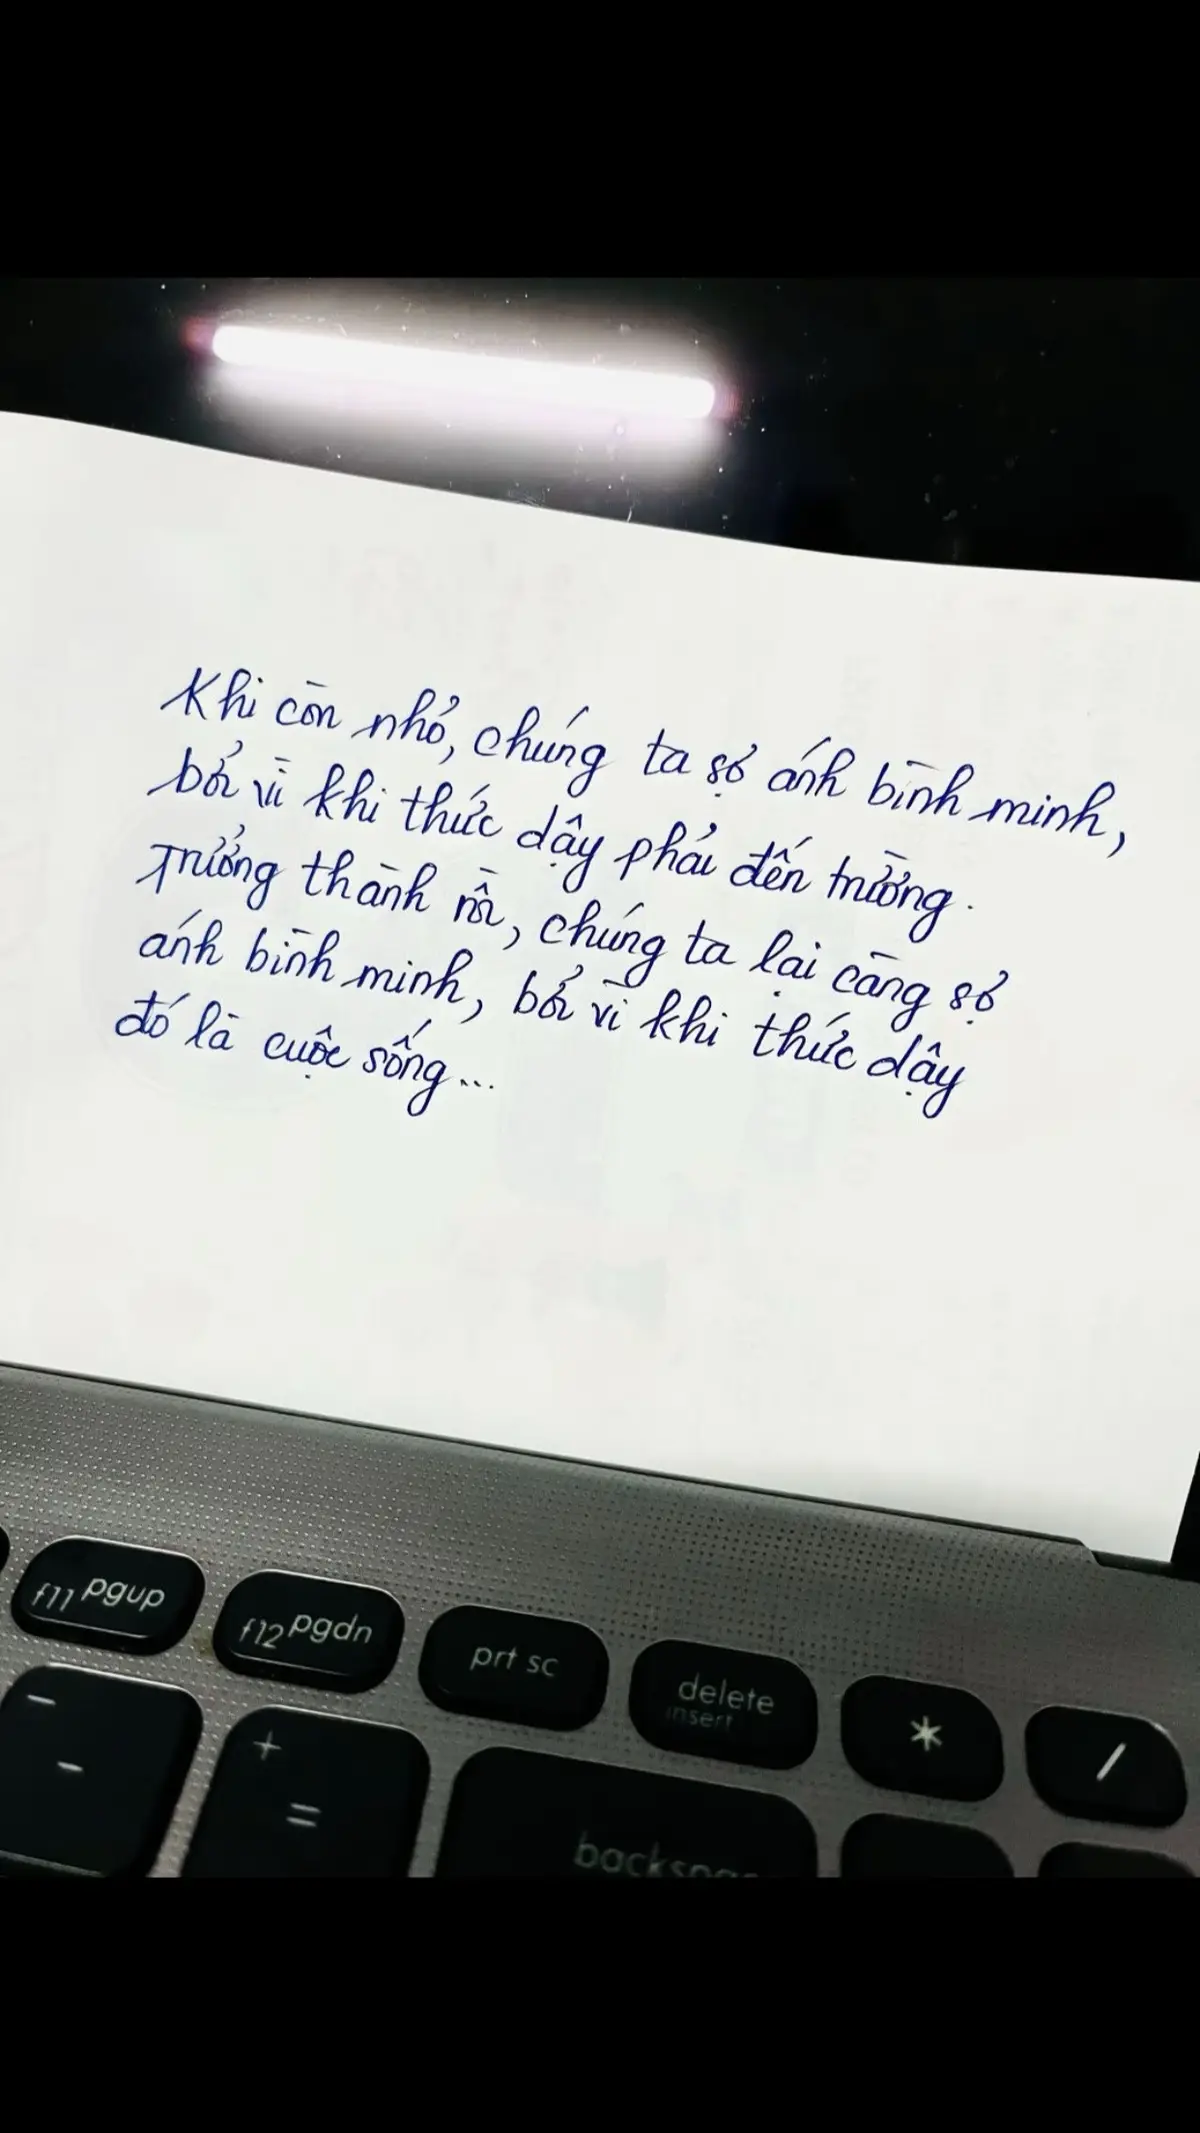 Khi còn nhỏ, chúng ta sợ ánh bình minh,
bởi vì khi thức dậy phải đến trường.
Trưởng thành rồi, chúng ta lại càng sợ
ánh bình minh, bởi vì khi thức dậy
đó là cuộc sống...
f11 pgup
f12 pgdn
prt sc
delete
insert
*
/
-
-
+
=